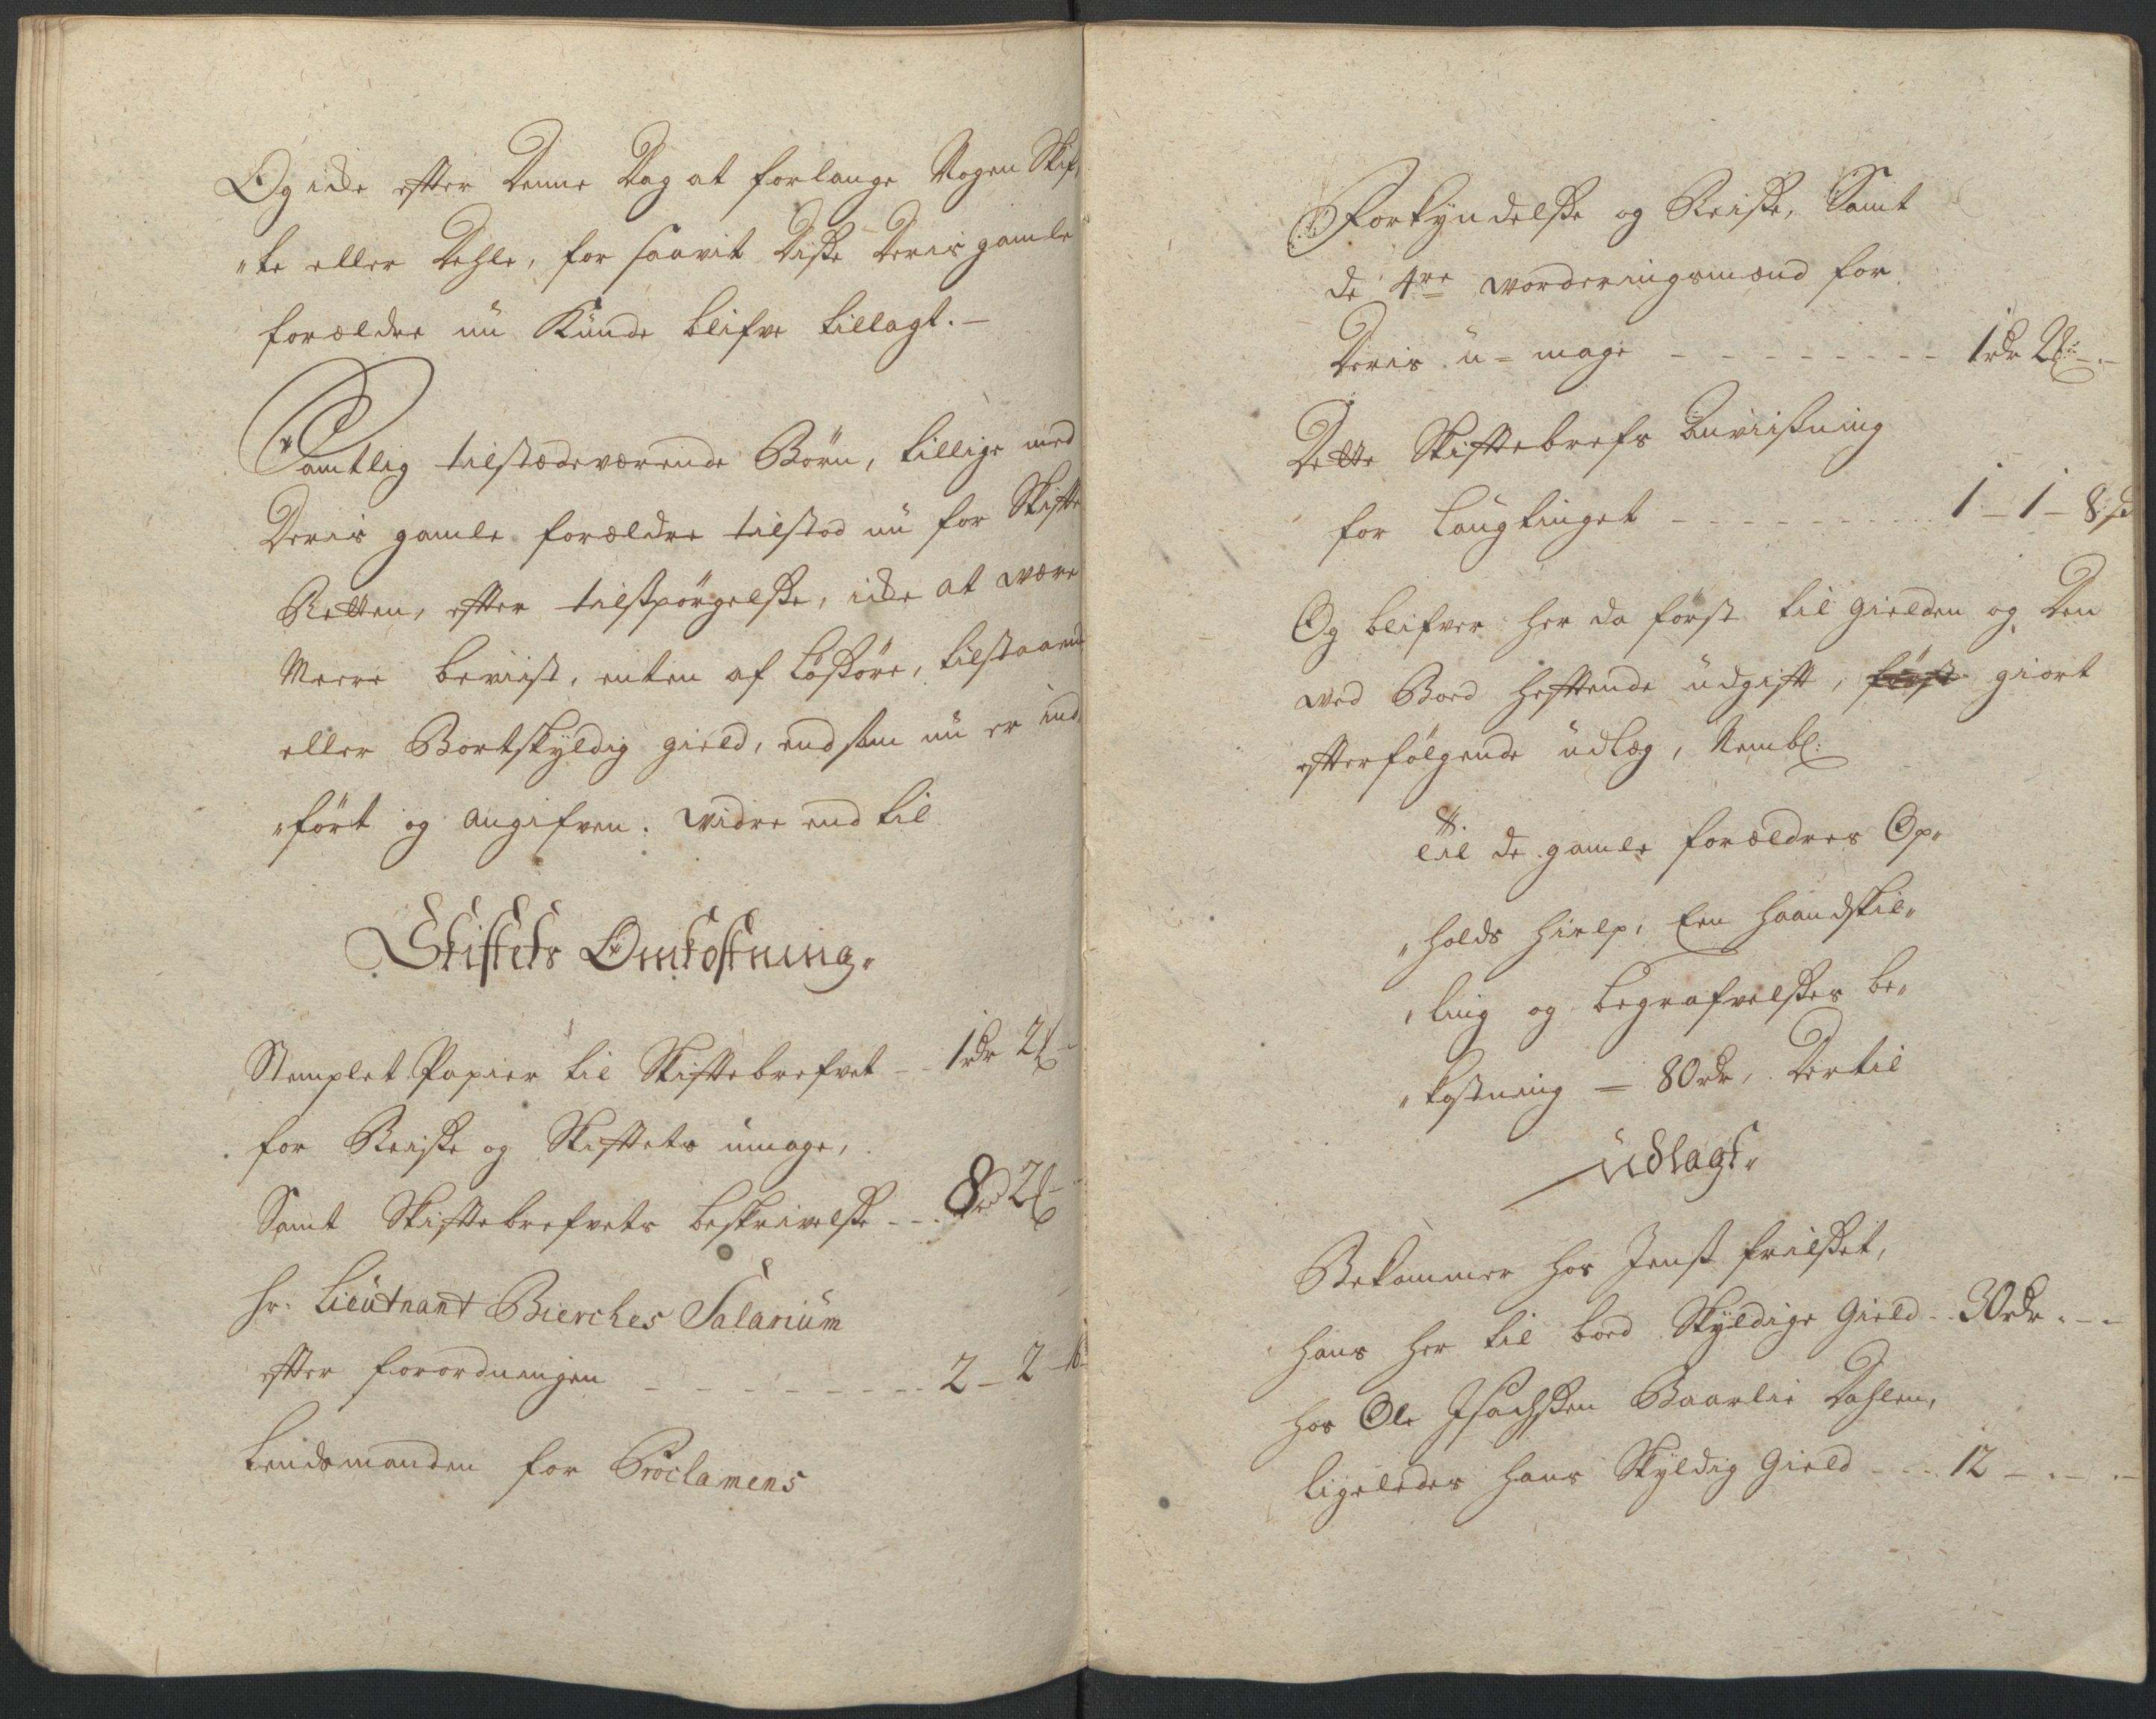 Og icke efter Denne Dag at forlange Nogen Skif,
"te eller Dehle, for saavit Disse Deris gamle
forældre nu Kunde blifve tillagt. -
Samtlig tilstædeværende Børn, tillige med
Deris gamle forældre tilstod nu for Skifte
Retten, efter tilspørgelsse, icke at være
Meere bevist, enten af Løsøre, tilstaaend
eller Bortskyldig gield, end som nu er ind,
"ført og angifven. widre end til
Skiftets Omkostning"
Stemplet Papier til Skiftebrefvet - - 1 rdr 2 ℔ -
for Reisse og Skiftets umage,
Samt Skiftebrefvets beskrivelsse - - - 8 rd 2 ℔ -
Hr. Lieutnant Bierches Salarium
efter forordningen - - - - - - - - 2 - 2 - 16
Lendsmanden for Proclamens
Forkyndelsse og Reisse, Samt
de 4re worderingsmænd for
Deris u-mage - - - - - - - - 1 rdr 2 ℔ - . -
Dette Skiftebrefs Anviisning
for Laugtinget - - - - - - - - 1 - 1 - 8 s
Og blifver her da først til gielden og Den
wed Boed heftende udgift, først giort
efterfølgende udlæg, Nembl:
Til de gamle forældres Op"
"holds hielp, Een haandskil"
"ling og begrafvelsses be"
"kostning = 80 rdr, Dertil
Udlagt"
Bekommer hos Jens frilset,
hans her til boed Skyldige Gield - - 30 rdr . - -
hos Ole Isachssen Baarlie Dahlen,
ligeledes hans Skyldig Gield - - - 12 - . - . -